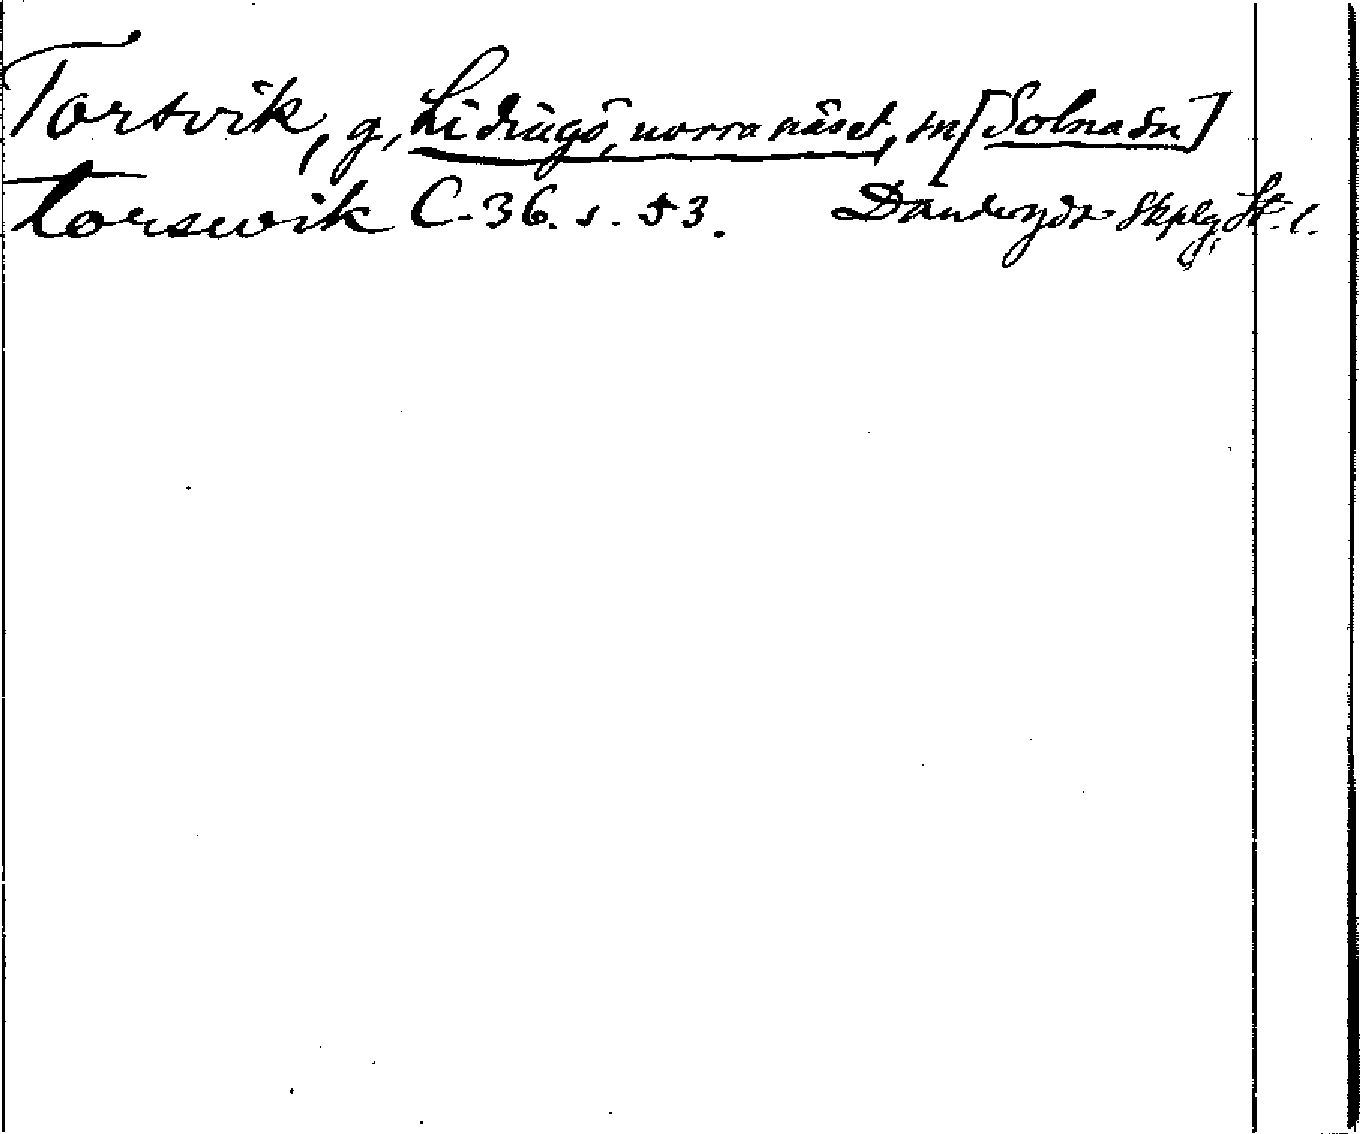 Torsvik, g, Lidingö, norra näset, sn [Solna sn]
Torswik C. 36. s. 53. Danderyds Skplg, St. l.